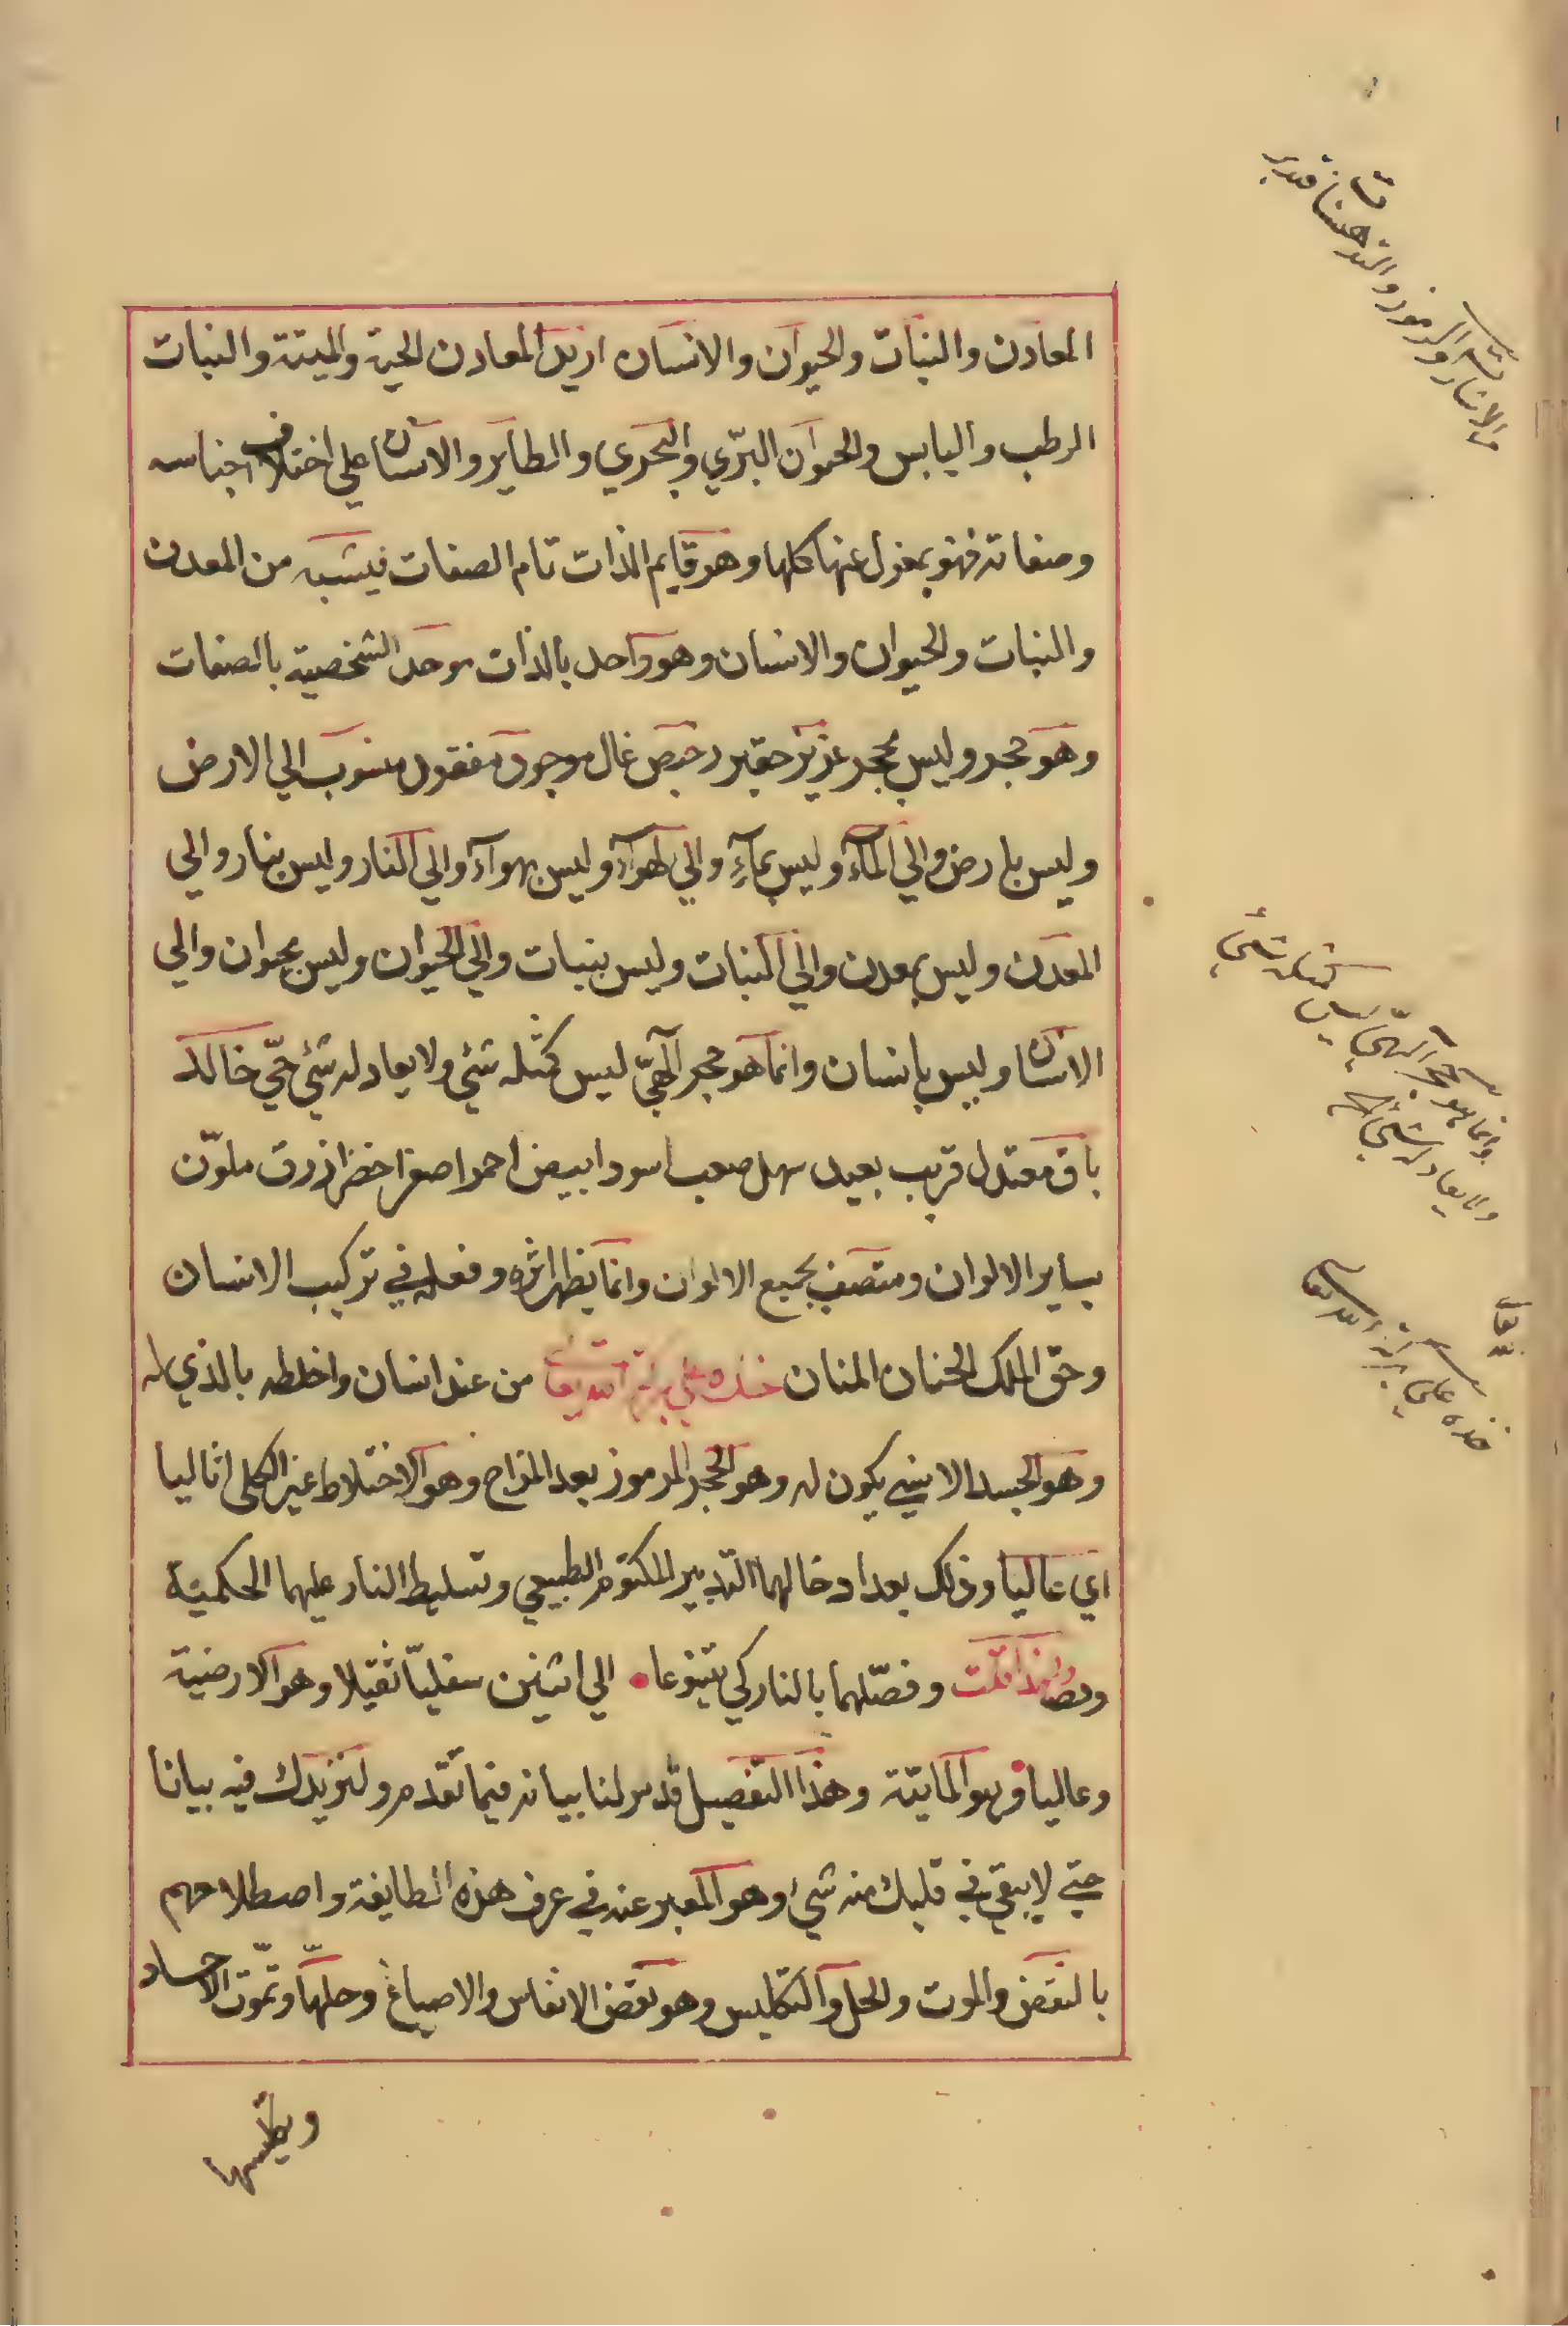 المعادن والنبات والحيوان والانسان اريد المعادن الحية والميتة والنبات
الرطب واليابس والحيوان البرّي والبحري والطاير والانسان علي اختلاف اجناسه
وصفاته فهو بمعزل عنها كلها وهو قايم الذات تام الصفات فيشبه من المعدن
والنبات والحيوان والانسان وهو واحد بالذات موحد الشخصية بالصفات
وهو حجر وليس بحجر عزيز حقير رخيص غال موجود مفقود منسوب الي الارض
وليس بارض والي المآء وليس بمآءٍ والي الهوآء وليس بهوآء والي النار وليس بنار والي
المعدن وليس بمعدن والي النبات وليس بنبات والي الحيوان وليس بحيوان والي
الانسان وليس بانسان وانما هو حجر آلهيّ ليس كمثله شئي ولا يعادله شئي حيّ خالد
باق معتدل قريب بعيد سهل صعب اسود ابيض احمر اصفر اخضر ازرق ملوّن
بساير الالوان ومتصف بجميع الالوان وانما يظهر اثره وفعله في تركيب الانسان
وحق الملك الحنان المنان خذه علي بركة الله تعالى من عند انسان واخلطه بالذي له
وهو الجسد الانيسي يكون له وهو الحجر المرموز بعد المزاج وهو الاختلاط غير الكلي اثاليا
اي عاليا وذلك بعد ادخالهما التدبير المكتوم الطبيعي وتسليط النار عليهما الحكمية
ولهذا قلت وفصّلهما بالنار كي يتنوعا الي اثنين سفليّا ثقيلا وهو الارضية
وعاليا وهو المايتة وهذا التفصيل قد مر لنا بيانه فيما تقدم ولنزيدك فيه بيانا
حتي لا يبقي في قلبك منه شئ وهو المعبر عنه في عرف هذه الطايفة واصطلاحهم
بالنقض والموت والحل والتكليس وهو نقض الانفاس والاصباغ وحلها وتموّت الاجساد
وانما هو حجر آلهيّ ليس كمثله شئي
ولا يعادله شئي
خذه علي بركة الله تعالى